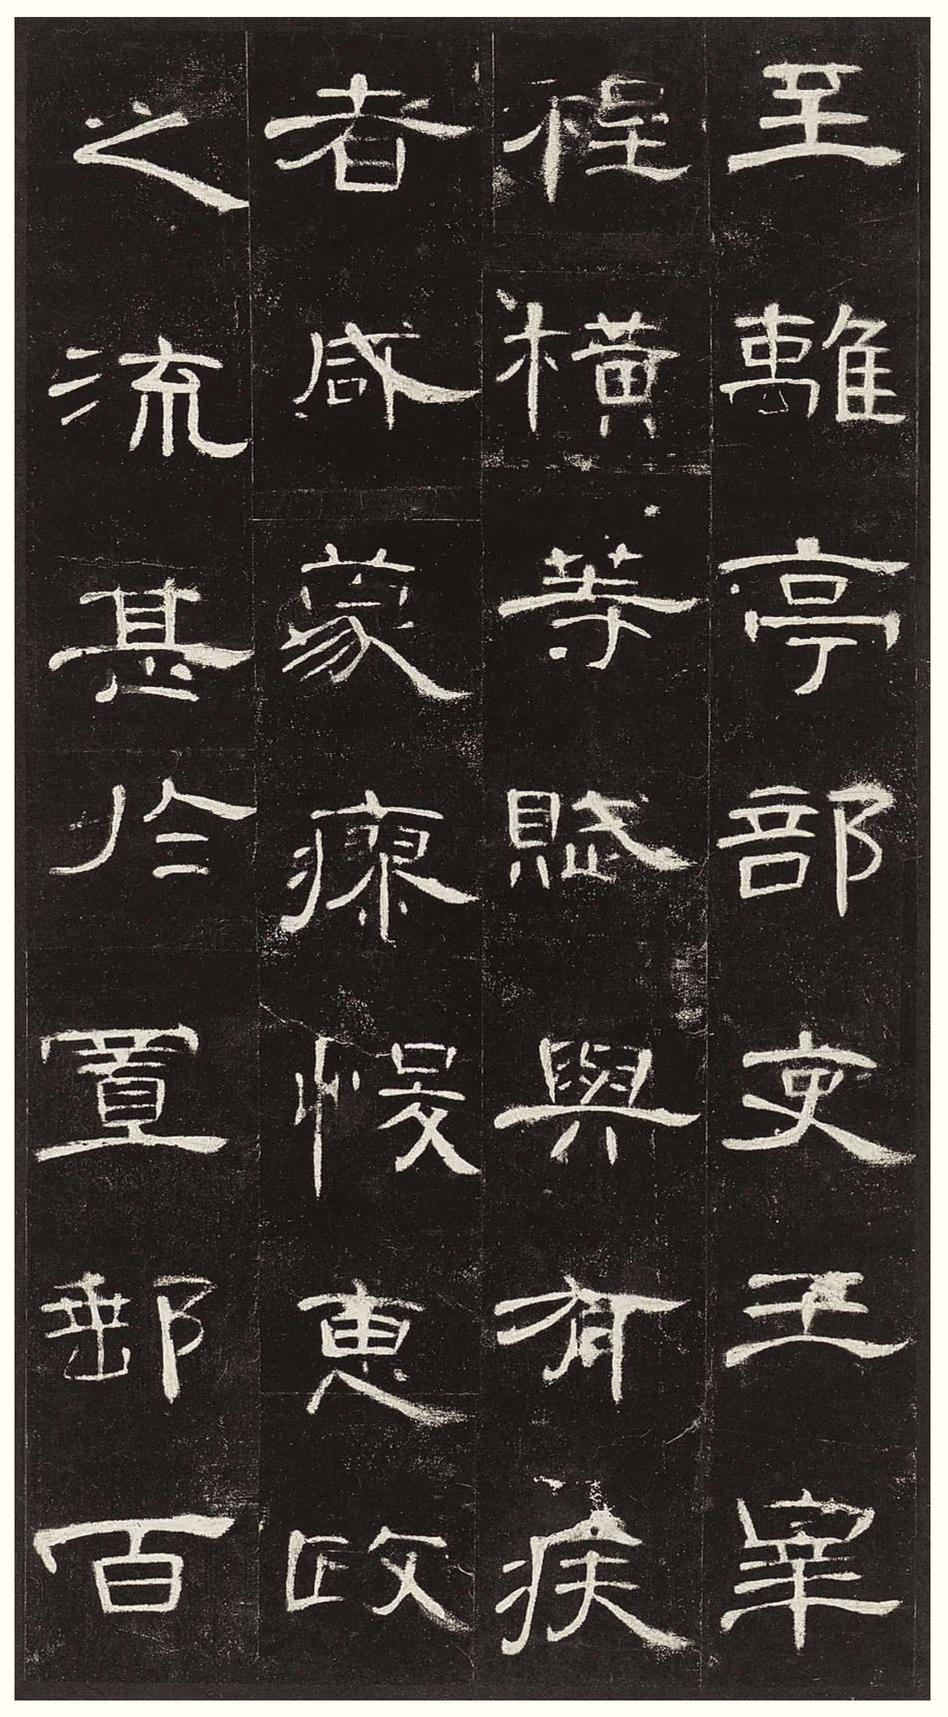 至離亭部吏王皐
程橫等賦與有疾
者咸蒙瘳悛惠政
之流甚於置郵百